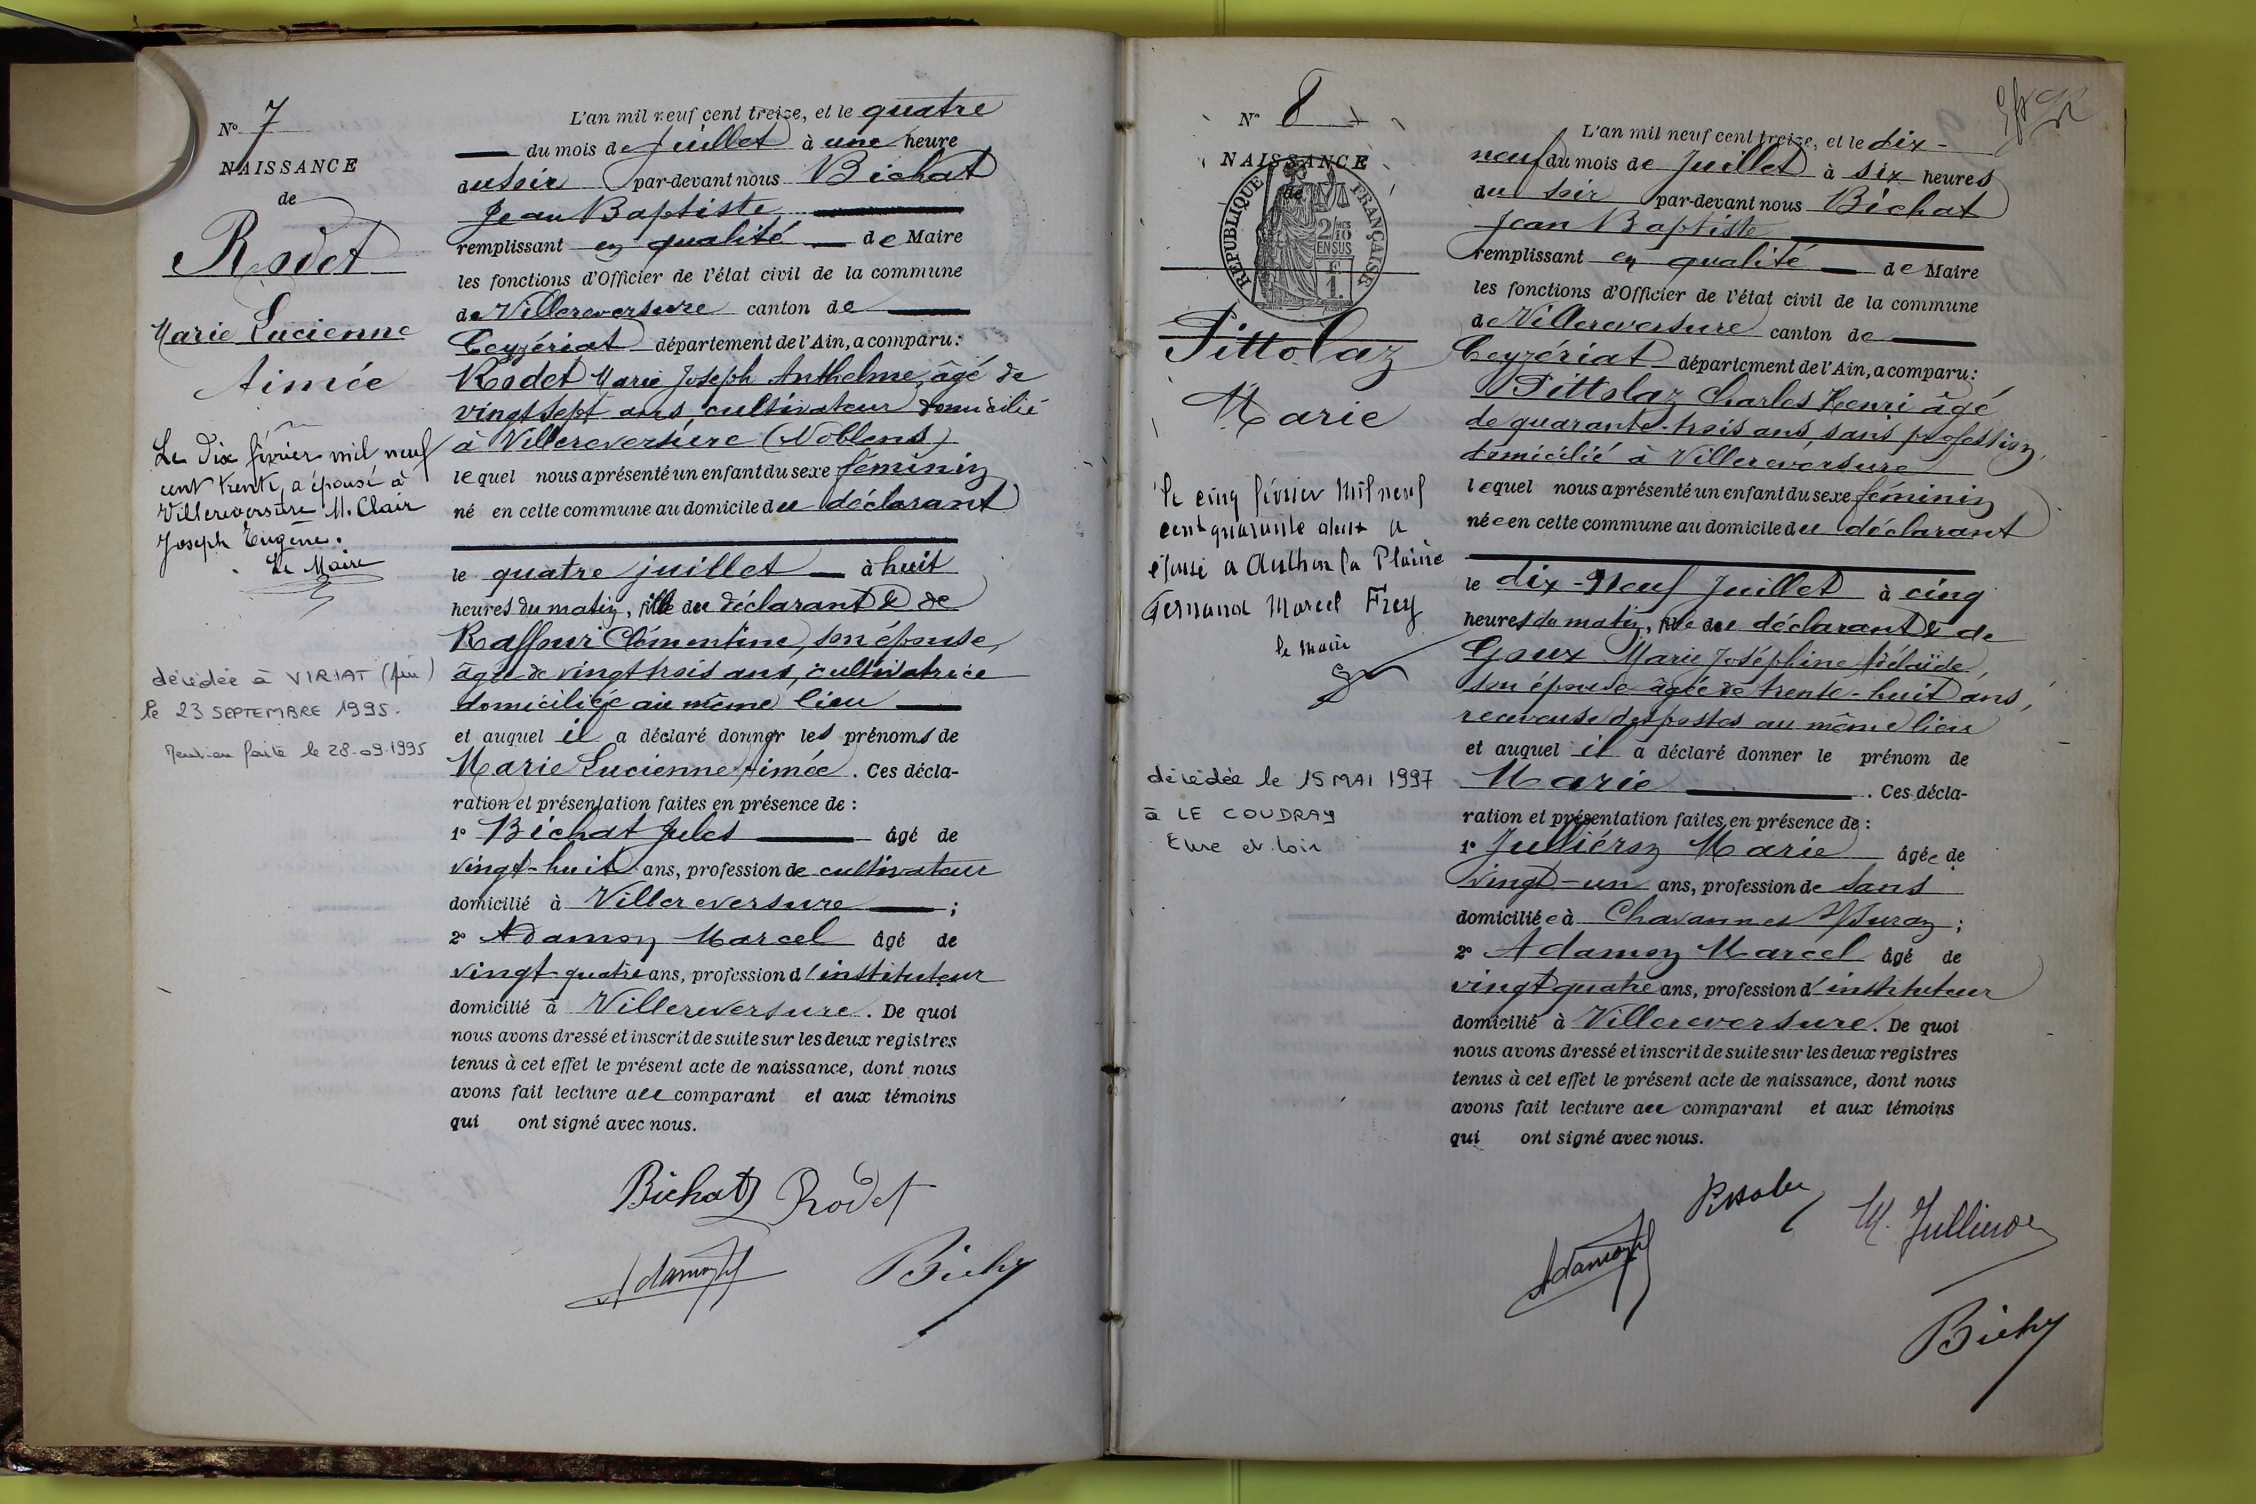 N° 7
NAISSANCE
de
Rodet
Marie Lucienne
Aimée
Le dix février mil neuf
cent trente, a épousé à
Villereversure M. Clair
Joseph Eugène.
Le Maire
décédée à VIRIAT (Ain)
le 23 SEPTEMBRE 1995.
Mention faite le 28-09-1995
L'an mil neuf cent treize, et le quatre
du mois de Juillet à une heure
du soir par-devant nous Bichat
Jean Baptiste
remplissant en qualité de Maire
les fonctions d'Officier de l'état civil de la commune
de Villereversure canton de
Ceyzériat département de l'Ain, a comparu:
Rodet Marie Joseph Anthelme, âgé de
vingt sept ans, cultivateur domicilié
à Villereversure (Noblens)
lequel nous a présenté un enfant du sexe féminin
né en cette commune au domicile du déclarant
le quatre juillet à huit
heures du matin, fille du déclarant & de
Raffour Clémentine, son épouse,
âgée de vingt trois ans, cultivatrice
domiciliée au même lieu
et auquel il a déclaré donner les prénoms de
Marie Lucienne Aimée. Ces décla-
ration et présentation faites en présence de :
1° Bichat Jules âgé de
vingt-huit ans, profession de cultivateur
domicilié à Villereversure ;
2° Adamoz Marcel âgé de
vingt-quatre ans, profession d'instituteur
domicilié à Villereversure. De quoi
nous avons dressé et inscrit de suite sur les deux registres
tenus à cet effet le présent acte de naissance, dont nous
avons fait lecture au comparant et aux témoins
qui ont signé avec nous.
Bichat Rodet
N° 8
NAISSANCE
de
RÉPUBLIQUE FRANÇAISE
2/10
EN SUS
Pittolaz
Marie
le cinq février Mil neuf
cent quarante deux a
épousé a Authon la Plaine
Fernand Marcel Frey
le maire
décédée le 15 MAI 1997
à LE COUDRAY
Eure et Loir
L'an mil neuf cent treize, et le dix-
neuf du mois de Juillet à six heures
du soir par-devant nous Bichat
Jean Baptiste
remplissant en qualité de Maire
les fonctions d'Officier de l'état civil de la commune
de Villereversure canton de
Ceyzériat département de l'Ain, a comparu:
Pittolaz Charles Henri âgé
de quarante-trois ans, sans profession,
domicilié à Villereversure
lequel nous a présenté un enfant du sexe féminin
née en cette commune au domicile du déclarant
le dix-Neuf Juillet à cinq
heures du matin, fille du déclarant & de
Goux Marie Joséphine Adélaïde,
son épouse âgée de trente-huit ans,
receveuse des postes au même lieu
et auquel il a déclaré donner le prénom de
Marie. Ces décla-
ration et présentation faites en présence de :
1° Julliéron Marie âgée de
vingt-un ans, profession de sans
domiciliée à Chavannes s/Suran ;
2° Adamoz Marcel âgé de
vingt quatre ans, profession d'instituteur
domicilié à Villereversure. De quoi
nous avons dressé et inscrit de suite sur les deux registres
tenus à cet effet le présent acte de naissance, dont nous
avons fait lecture au comparant et aux témoins
qui ont signé avec nous.